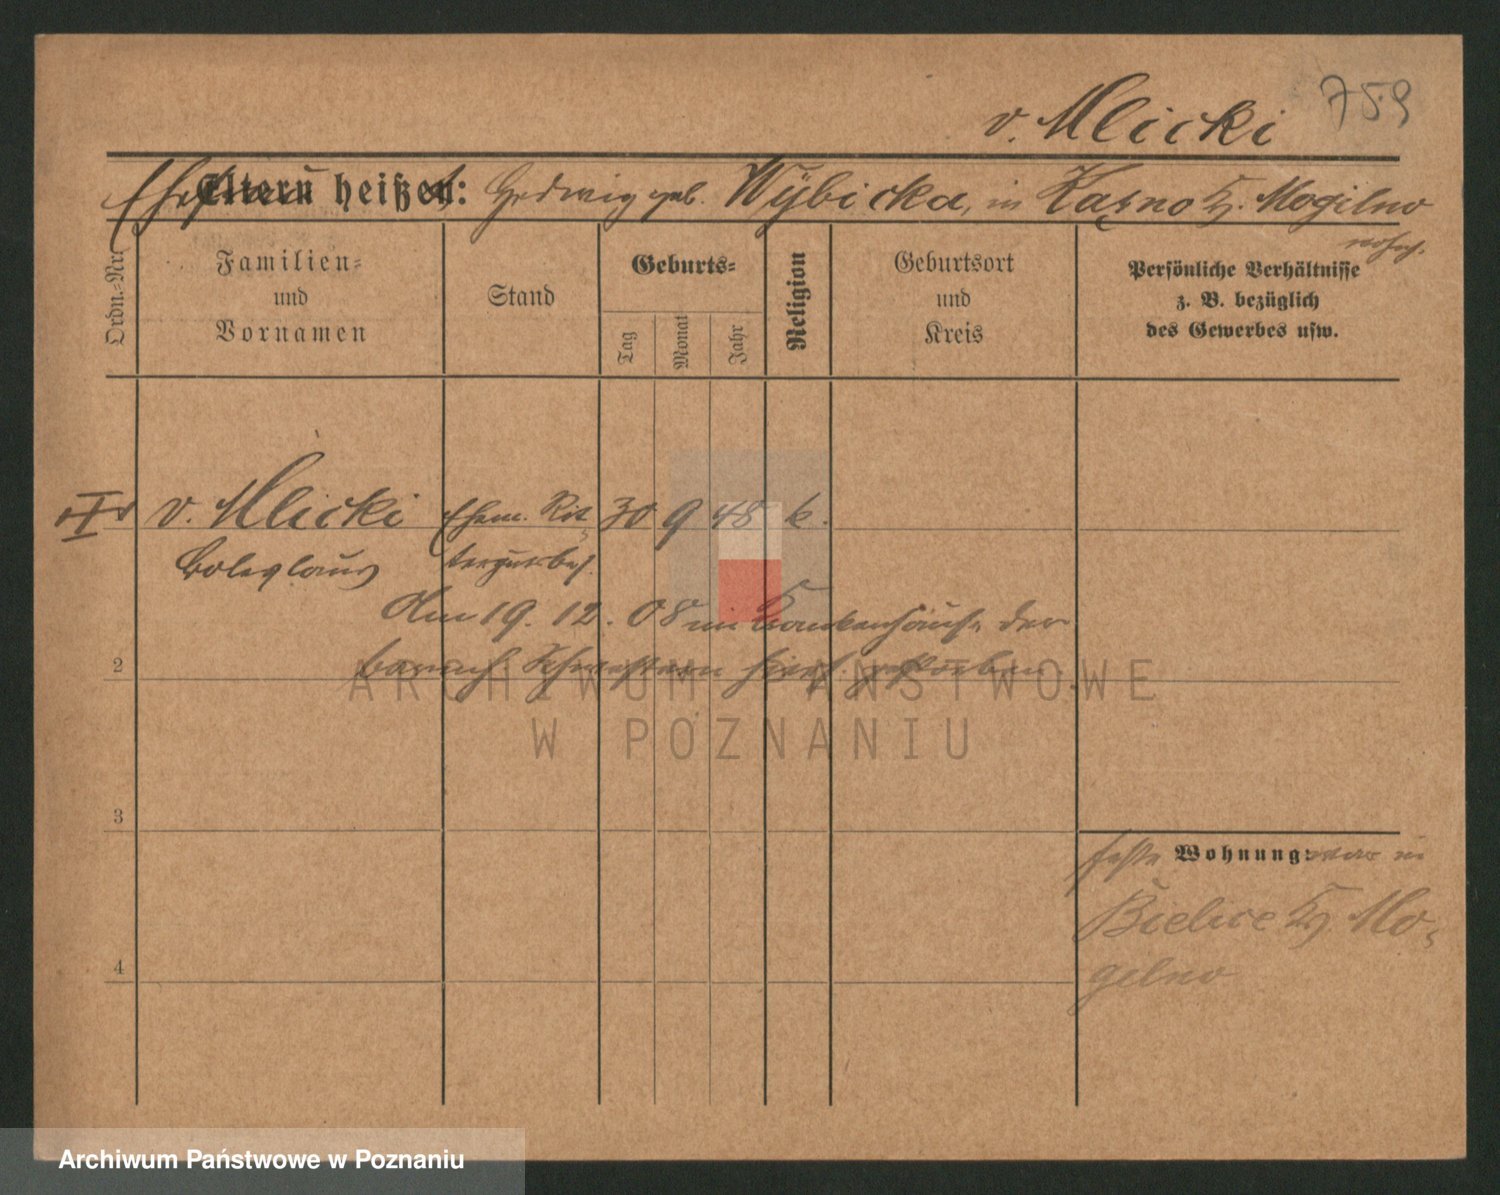 v. Mlicki 759
Ehefrau Eltern heißen: Hedwig geb. Wybicka, in Kasno Kr. Mogilno
wohnh.
Ordn.-Nr.
Familien-
und
Vornamen
Stand
Geburts-
Tag
Monat
Jahr
Religion
Geburtsort
und
Kreis
Persönliche Verhältnisse
z. B. bezüglich
des Gewerbes usw.
I v. Mlicki ehem. Rit- 30 9 48 k.
Boleslaus tergutsbes.
Am 19. 12. 08 im Krankenhause der
barmh. Schwestern hiers. gestorben.
2
3
4
feste Wohnung: war in
Bielice Kr. Mo-
gilno
ARCHIWUM PAŃSTWOWE
W POZNANIU
Archiwum Państwowe w Poznaniu